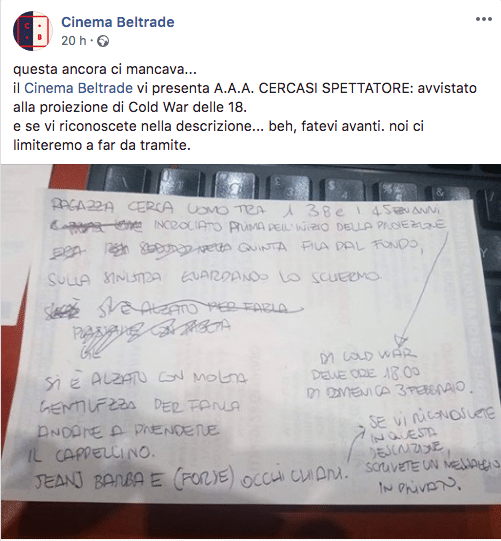 Cinema Beltrade
20 h ·
questa ancora ci mancava...
il Cinema Beltrade vi presenta A.A.A. CERCASI SPETTATORE: avvistato
alla proiezione di Cold War delle 18.
e se vi riconoscete nella descrizione... beh, fatevi avanti. noi ci
limiteremo a far da tramite.
RAGAZZA CERCA UOMO TRA I 38 E I 45 ANNI
INCROCIATO PRIMA DELL'INIZIO DELLA PROIEZIONE
NELLA QUINTA FILA DAL FONDO,
SULLA SINISTRA GUARDANDO LO SCHERMO
SI È ALZATO PER FARLA
DI COLD WAR
DELLE ORE 18:00
DI DOMENICA 3 FEBBRAIO.
SI È ALZATO CON MOLTA
GENTILEZZA PER FARLA
ANDARE A PRENDERE
IL CAPPELLINO.
JEANS BARBA E (FORSE) OCCHI CHIARI.
SE VI RICONOSCETE
IN QUESTA
DESCRIZIONE,
SCRIVETE UN MESSAGGIO
IN PRIVATO.